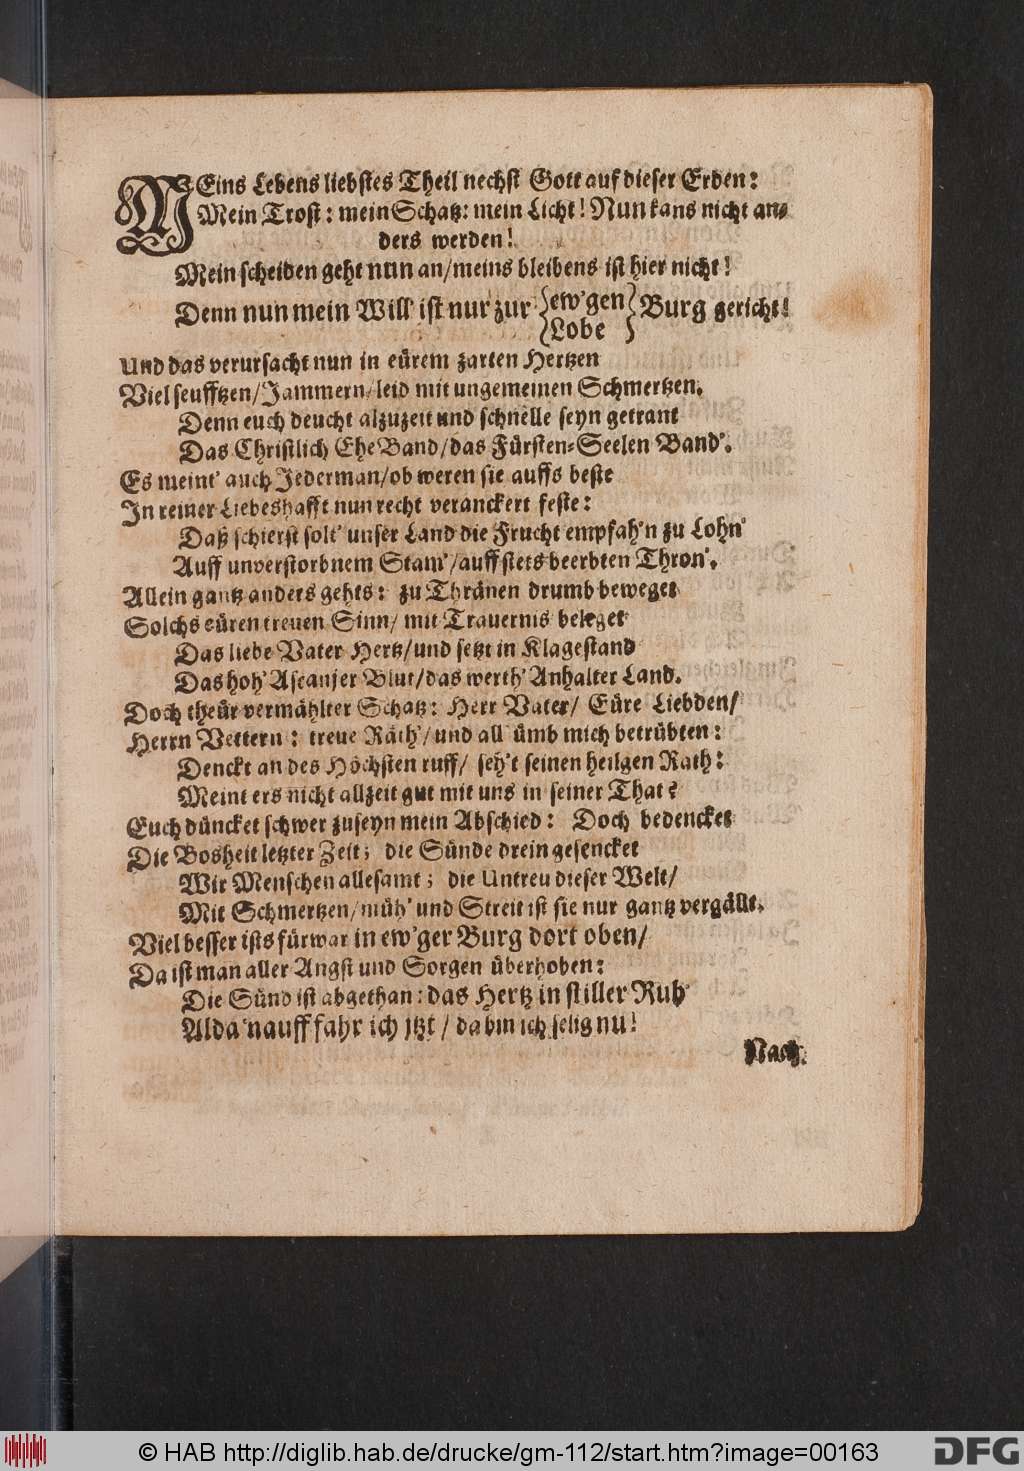 MEins Lebens liebstes Theil nechst Gott auf dieser Erden:
Mein Trost: mein Schatz: mein Licht! Nun kans nicht an⸗
ders werden!
Mein scheiden geht nun an/ meins bleibens ist hier nicht!
Denn nun mein Will' ist nur zur {ew'gen} Burg gericht!
{Lobe}
Und das verursacht nun in eürem zarten Hertzen
Viel seufftzen/ Jammern/ leid mit ungemeinen Schmertzen.
Denn euch deucht alzuzeit und schnelle seyn getrant
Das Christlich Ehe Band/ das Fürsten⸗Seelen Band'.
Es meint' auch Jederman/ ob weren sie auffs beste
In reiner Liebeshafft nun recht veranckert feste:
Daß schierst solt' unser Land die Frucht empfah'n zu Lohn'
Auff unverstorbnem Stam'/ auff stets beerbten Thron'.
Allein gantz anders gehts: zu Thränen drumb beweget
Solchs eüren treuen Sinn/ mit Trauernis beleget
Das liebe Vater Hertz/ und setzt in Klagestand
Das hoh' Ascanjer Blut/ das werth' Anhalter Land.
Doch theür vermählter Schatz: Herr Vater/ Eüre Liebden/
Herrn Vettern: treue Räth'/ und all' ümb mich betrübten:
Denckt an des Höchsten ruff/ seh't seinen heilgen Rath:
Meint ers nicht allzeit gut mit uns in seiner That?
Euch düncket schwer zuseyn mein Abschied: Doch bedencket
Die Bosheit letzter Zeit; die Sünde drein gesencket
Wir Menschen allesamt; die Untreu dieser Welt/
Mit Schmertzen/ müh' und Streit ist sie nur gantz vergällt.
Viel besser ists fürwar in ew'ger Burg dort oben/
Da ist man aller Angst und Sorgen überhoben:
Die Sünd ist abgethan: das Hertz in stiller Ruh'
Alda 'nauff fahr ich jtzt/ da bin ich selig nu!
Nach.
© HAB http://diglib.hab.de/drucke/gm-112/start.htm?image=00163
DFG